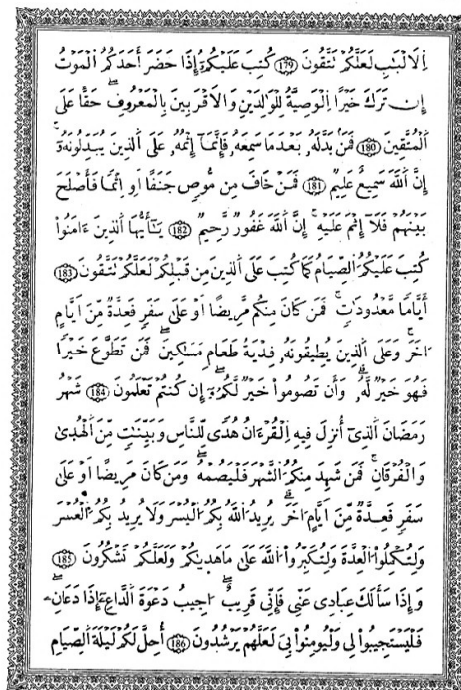 اِلَالْبَٰبِ لَعَلَّكُمْ تَتَّقُونَ 179 كُتِبَ عَلَيْكُمُۥٓ إِذَا حَضَرَ أَحَدَكُمُ اُلْمَوْتُ
إِن تَرَكَ خَيْراً اِلْوَصِيَّةُ لِلْوَٰلِدَيْنِ وَالَاقْرَبِينَ بِالْمَعْرُوفِ حَقّاً عَلَى
اَلْمُتَّقِينَ 180 فَمَنۢ بَدَّلَهُۥ بَعْدَ مَا سَمِعَهُۥ فَإِنَّمَآ إِثْمُهُۥ عَلَى اَلذِينَ يُبَدِّلُونَهُۥٓ
إِنَّ اَللَّهَ سَمِيعٌ عَلِيمٌ 181 فَمَنْ خَافَ مِن مُّوصٍ جَنَفاً اَوِ اِثْماً فَأَصْلَحَ
بَيْنَهُمْ فَلَآ إِثْمَ عَلَيْهِ إِنَّ اَللَّهَ غَفُورٌ رَّحِيمٌ 182 يَٰٓأَيُّهَا اَلذِينَ ءَامَنُواْ
كُتِبَ عَلَيْكُمُ اُلصِّيَامُ كَمَا كُتِبَ عَلَى اَلذِينَ مِن قَبْلِكُمْ لَعَلَّكُمْ تَتَّقُونَ 183
أَيَّاماً مَّعْدُودَٰتٍ فَمَن كَانَ مِنكُم مَّرِيضاً اَوْ عَلَىٰ سَفَرٍ فَعِدَّةٌ مِّنَ اَيَّامٍ
اُخَرَ وَعَلَى اَلذِينَ يُطِيقُونَهُۥ فِدْيَةُ طَعَامِ مَسَٰكِينَ فَمَن تَطَوَّعَ خَيْراً
فَهُوَ خَيْرٌ لَّهُۥ وَأَن تَصُومُواْ خَيْرٌ لَّكُمُۥٓ إِن كُنتُمْ تَعْلَمُونَ 184 شَهْرُ
رَمَضَانَ اَلذِيٓ أُنزِلَ فِيهِ اِلْقُرْءَانُ هُدىً لِّلنَّاسِ وَبَيِّنَٰتٍ مِّنَ اَلْهُدَىٰ
وَالْفُرْقَانِ فَمَن شَهِدَ مِنكُمُ اُلشَّهْرَ فَلْيَصُمْهُ وَمَن كَانَ مَرِيضاً اَوْ عَلَىٰ
سَفَرٍ فَعِدَّةٌ مِّنَ اَيَّامٍ اُخَرَ يُرِيدُ اُللَّهُ بِكُمُ اُلْيُسْرَ وَلَا يُرِيدُ بِكُمُ اُلْعُسْرَ
وَلِتُكْمِلُواْ اُلْعِدَّةَ وَلِتُكَبِّرُواْ اُللَّهَ عَلَىٰ مَا هَدَىٰكُمْ وَلَعَلَّكُمْ تَشْكُرُونَ 185
وَإِذَا سَأَلَكَ عِبَادِى عَنِّى فَإِنِّى قَرِيبٌ اُجِيبُ دَعْوَةَ اَلدَّاعِۦٓ إِذَا دَعَانِۦ
فَلْيَسْتَجِيبُواْ لِى وَلْيُومِنُواْ بِىَ لَعَلَّهُمْ يَرْشُدُونَ 186 أُحِلَّ لَكُمْ لَيْلَةَ اَلصِّيَامِ